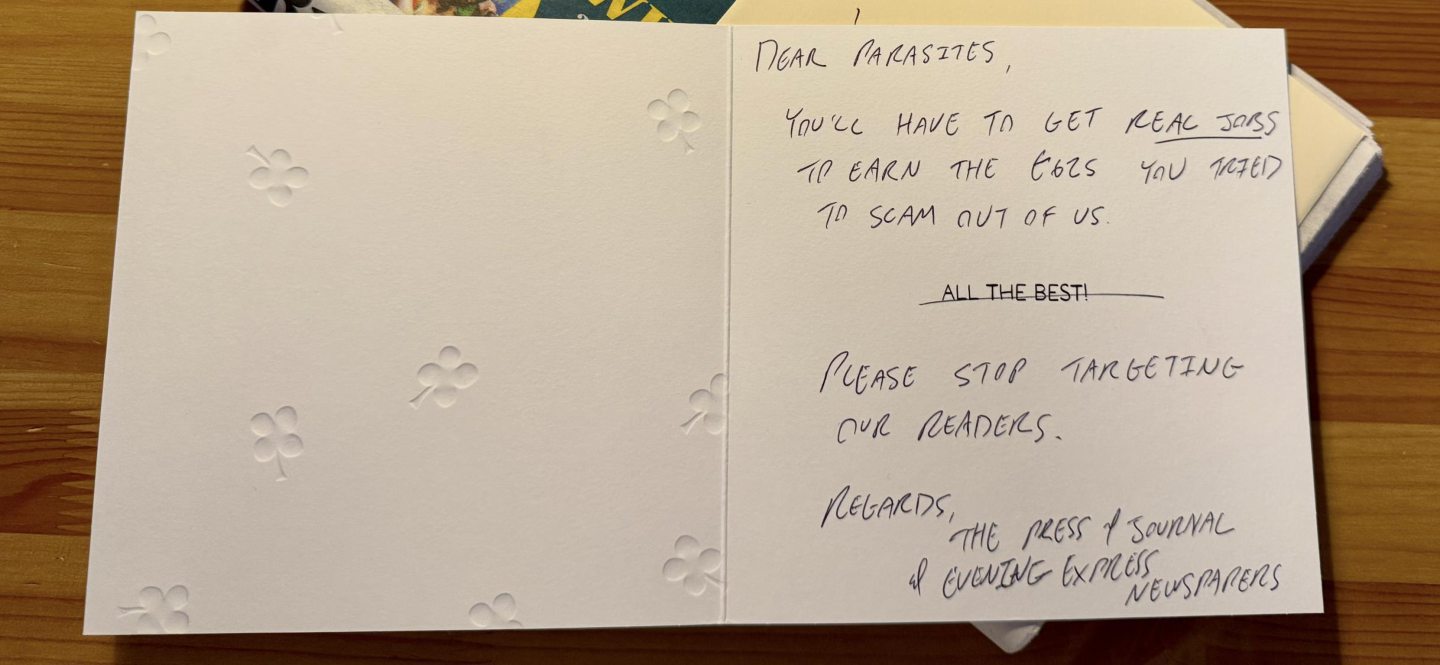 DEAR PARASITES,
YOU'LL HAVE TO GET REAL JOBS
TO EARN THE £625 YOU TRIED
TO SCAM OUT OF US.
ALL THE BEST!
PLEASE STOP TARGETING
OUR READERS.
REGARDS,
THE PRESS & JOURNAL
& EVENING EXPRESS
NEWSPAPERS